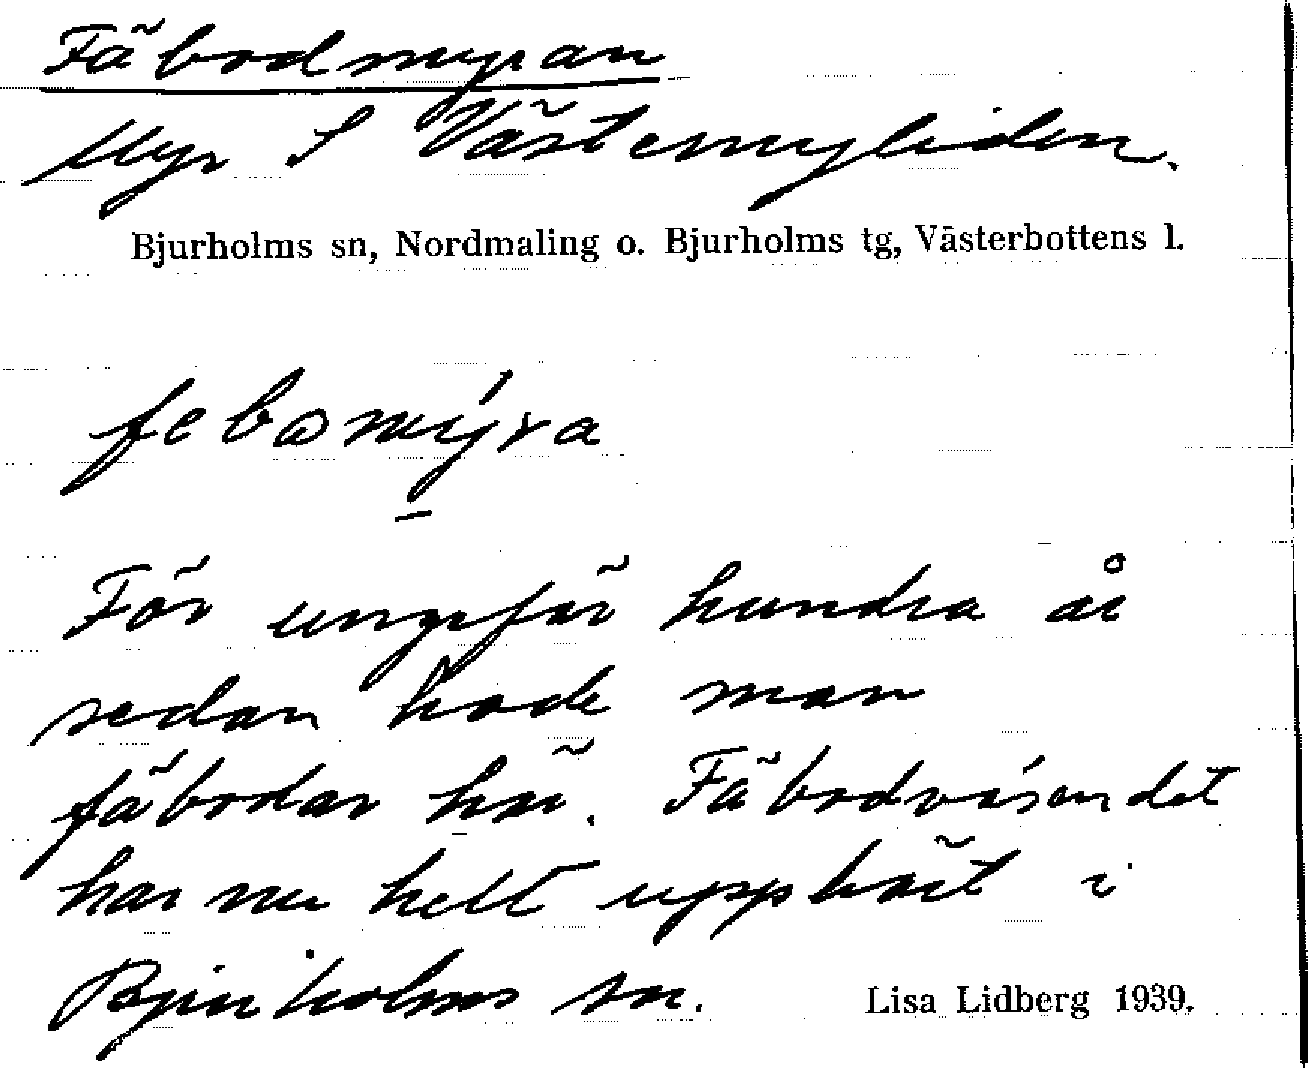 Fäbodmyran
Myr S Västemyrliden.
Bjurholms sn, Nordmaling o. Bjurholms tg, Västerbottens l.
febomýra
För ungefär hundra år
sedan hade man
fäbodar här. Fäbodväsendet
har nu helt upphört i
Bjurholms sn.
Lisa Lidberg 1939.